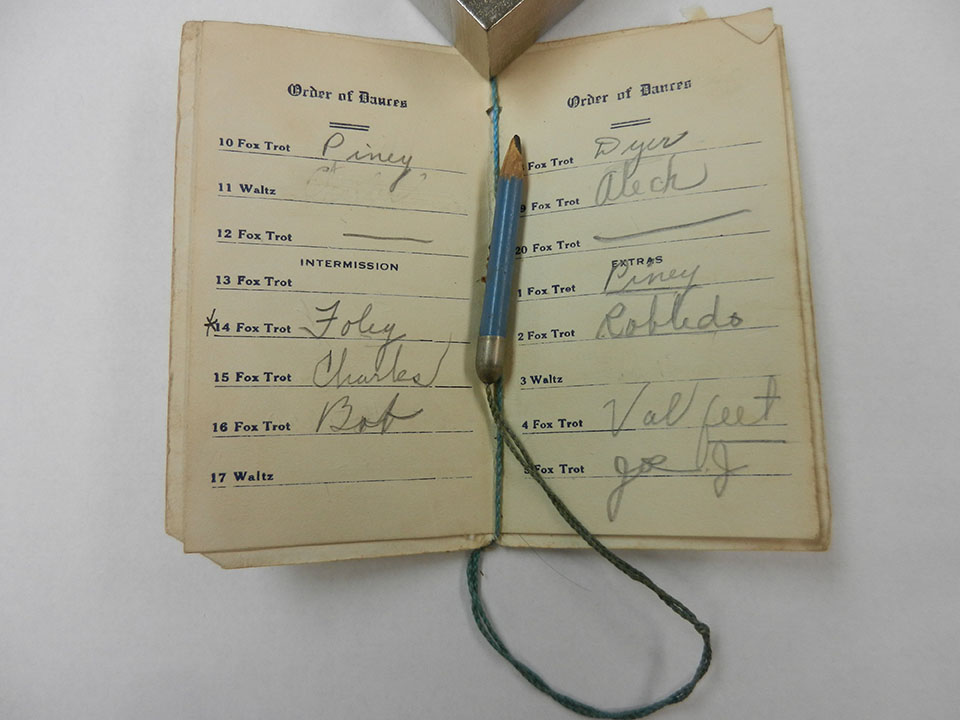 Order of Dances
10 Fox Trot Piney
11 Waltz
12 Fox Trot
INTERMISSION
13 Fox Trot
14 Fox Trot Foley
15 Fox Trot Charles
16 Fox Trot Bob
17 Waltz
Order of Dances
Fox Trot Dyer
9 Fox Trot Aleck
20 Fox Trot
EXTRAS
1 Fox Trot Piney
2 Fox Trot Robledo
3 Waltz
4 Fox Trot Val feet
5 Fox Trot Joe J